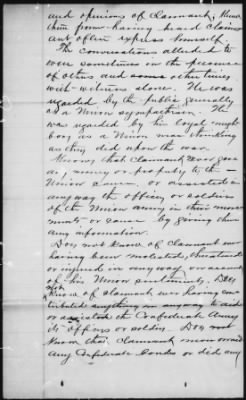 and opinions of claimant, knew
them from having heard claim-
ant often express himself.
The conversations alluded to
were sometimes in the presence
of others and some other times
with witness alone. He was
regarded by the public generally
as a Union sympathiser. He
was regarded by his loyal neigh-
bors as a Union man thinking
as they did upon the war.
Knows that claimant ever gave
as, money or property to the
Union cause, or assisted in
any way the officers or soldiers
of the Union army in their move-
ments or cause by giving them
any information.
Does not know of claimant ever
having been molested, threatened
or injured in any way on account
of his Union sentiments. Does
not
know of claimant ever having con-
tributed anything in any way to aid
or assisted the Confederate Army
its officers or soldiers. Does not
know that claimant ever owned
any Confederate bonds or did any